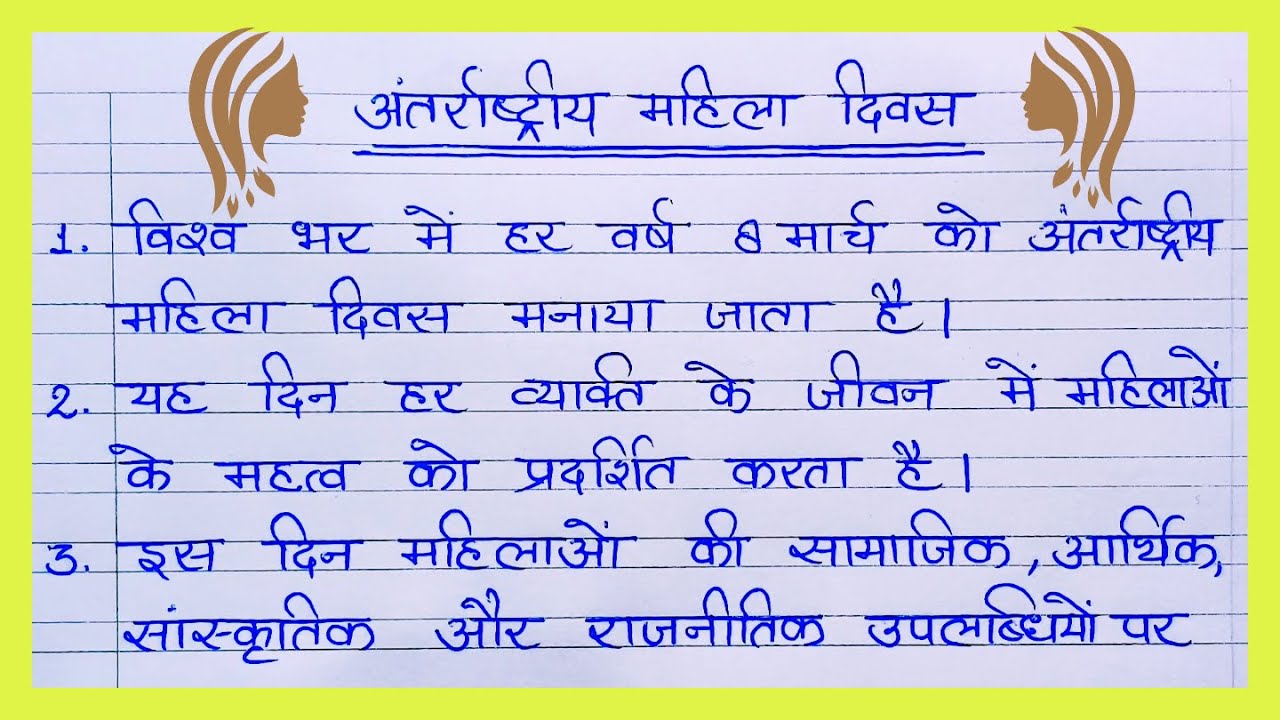 अंतर्राष्ट्रीय महिला दिवस
1. विश्व भर में हर वर्ष 8 मार्च को अंतर्राष्ट्रीय
महिला दिवस मनाया जाता है।
2. यह दिन हर व्यक्ति के जीवन में महिलाओं
के महत्व को प्रदर्शित करता है।
3. इस दिन महिलाओं की सामाजिक, आर्थिक,
सांस्कृतिक और राजनीतिक उपलब्धियों पर